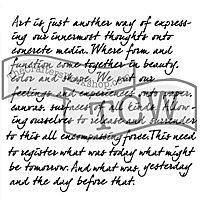 Art is just another way of express-
ing our innermost thoughts onto
concrete media. Where form and
function come together in beauty,
color and shape. We put our
feelings and experiences onto paper,
canvas, surfaces of all kinds, allow-
ing ourselves to release and surrender
to this all encompassing force. This need
to register what was today what might
be tomorrow. And what was yesterday
and the day before that.